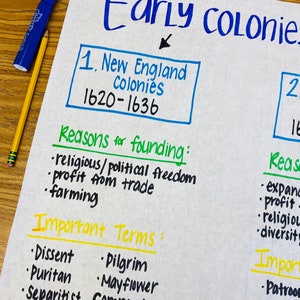 Early Colonies
1. New England
colonies
1620-1636
Reasons for founding:
• religious/political freedom
• profit from trade
• farming
Important Terms:
• Dissent
• Pilgrim
• Puritan
• Mayflower
• Separatist
2
Reas
• expan
• profit
• religio
• diversit
Impor
• Patroo